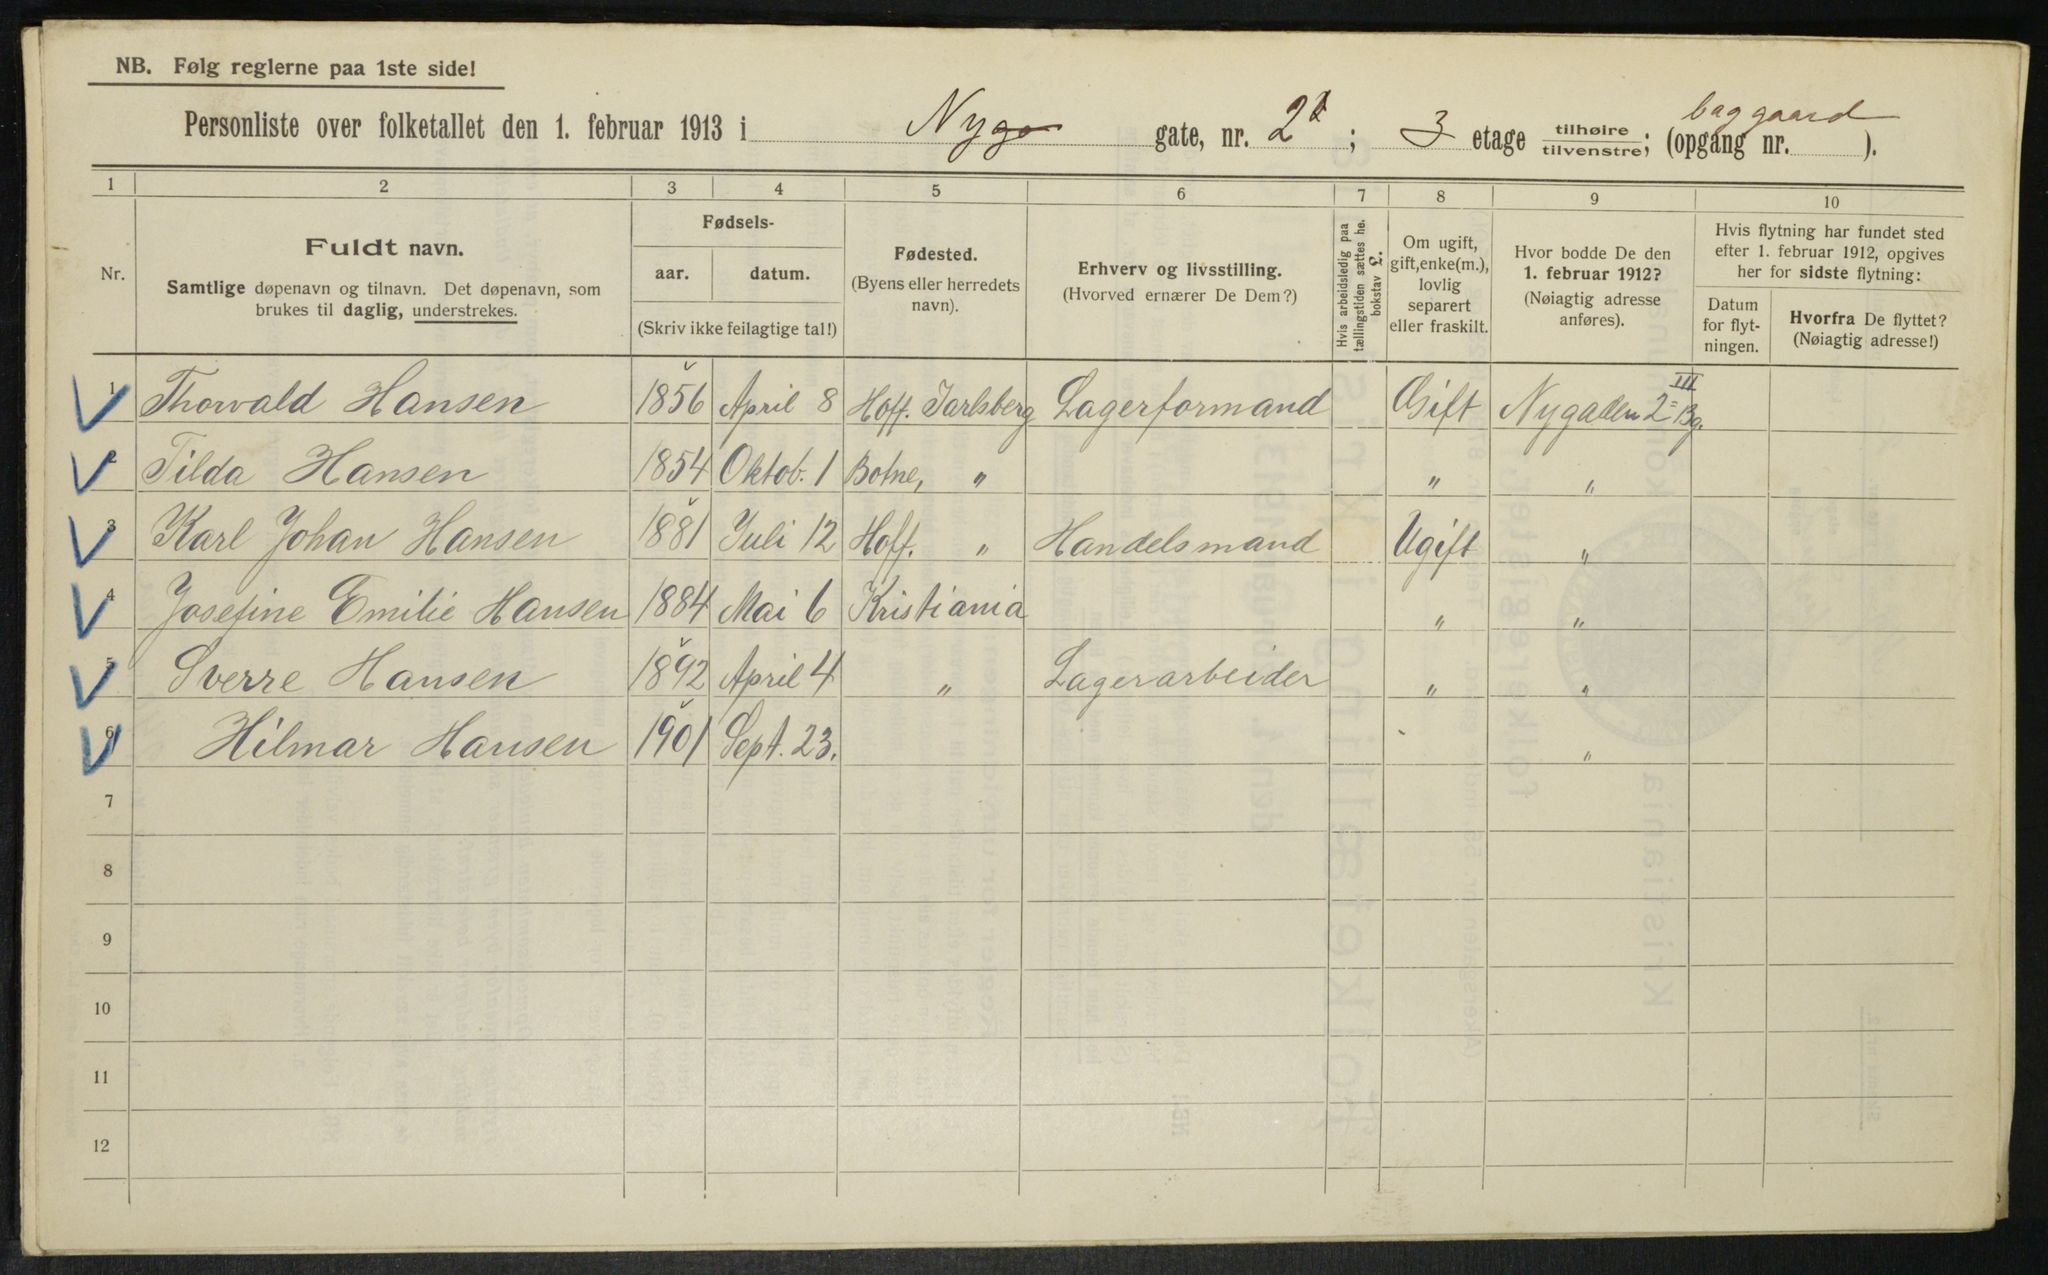 NB. Følg reglerne paa 1ste side!
Personliste over folketallet den 1. februar 1913 i Nyga gate, nr. 2; 3 etage tilhøire / tilvenstre; (opgang nr. baggaard).
1 2 3 4 5 6 7 8 9 10
Nr.
Fuldt navn.
Samtlige døpenavn og tilnavn. Det døpenavn, som
brukes til daglig, understrekes.
Fødsels-
aar. datum.
(Skriv ikke feilagtige tal!)
Fødested.
(Byens eller herredets
navn).
Erhverv og livsstilling.
(Hvorved ernærer De Dem?)
Hvis arbeidsledig paa
tællingstiden sættes he.
bokstav L.
Om ugift,
gift, enke(m.),
lovlig
separert
eller fraskilt.
Hvor bodde De den
1. februar 1912?
(Nøiagtig adresse
anføres).
Hvis flytning har fundet sted
efter 1. februar 1912, opgives
her for sidste flytning:
Datum
for flyt-
ningen.
Hvorfra De flyttet?
(Nøiagtig adresse!)
1 Thorvald Hansen 1856 April 8 Hoff. Jarlsberg Lagerformand Gift Nygaden 2 III Bg.
2 Tilda Hansen 1854 Oktob. 1 Botne, " " "
3 Karl Johan Hansen 1881 Juli 12 Hoff. " Handelsmand Ugift "
4 Josefine Emilie Hansen 1884 Mai 6 Kristiania " "
5 Sverre Hansen 1892 April 4 " Lagerarbeider " "
6 Hilmar Hansen 1901 Sept. 23. "
7
8
9
10
11
12